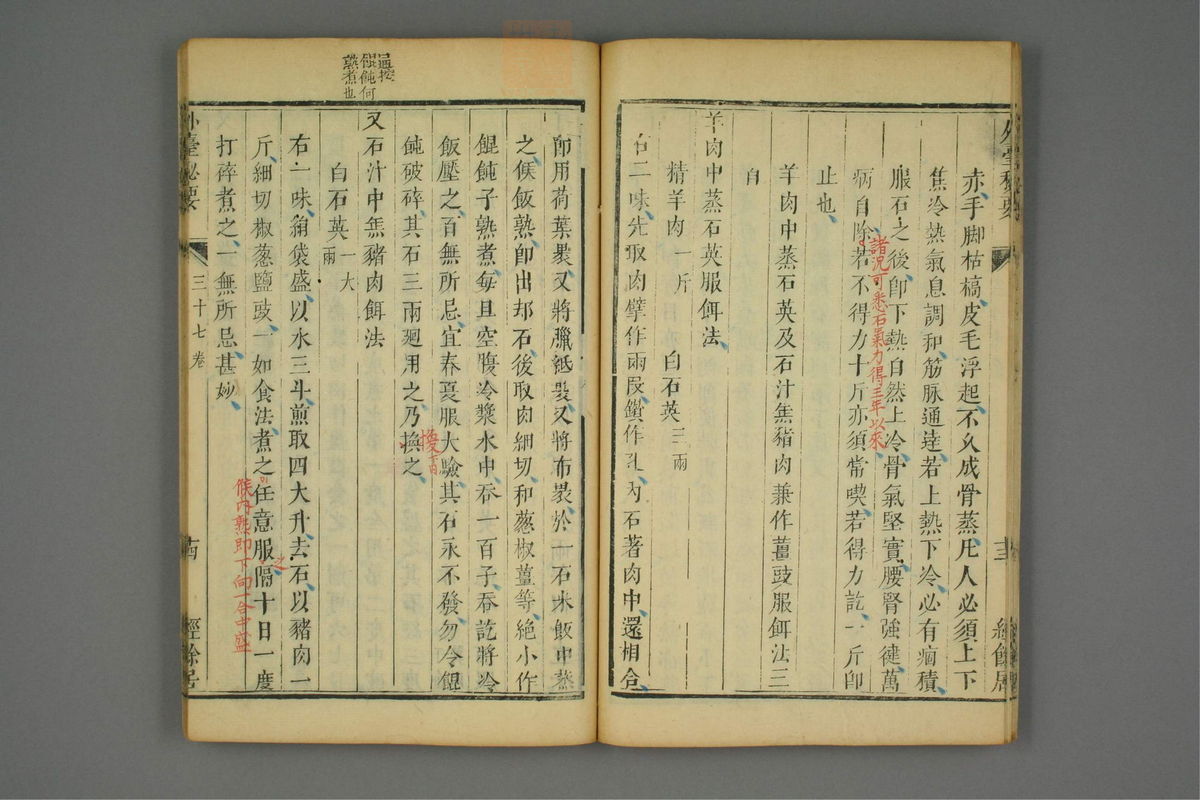 外臺秘要
赤手脚枯槁皮毛浮起不久成骨蒸凡人必須上下
焦冷熱氣息調和筋脉通達若上熱下冷必有痼積
服石之後卽下熱自然上冷骨氣堅實腰腎強健萬
諸況可悉石氣力得三年以來
病自除若不得力十斤亦須常喫若得力訖一斤卽
止也
羊肉中蒸石英及石汁焦豬肉兼作薑豉服餌法三
自
羊肉中蒸石英服餌法
精羊肉一斤 白石英三兩
右二味先取肉擘作兩段鑽作孔內石著肉中還相合
卽用荷葉裹又將臘紙裹又將布裹於兩石米飯中蒸
之候飯熟卽出却石後取肉細切和葱椒薑等絕小作
餛飩子熟煮每旦空腹冷漿水中吞一百子吞訖將冷
飯壓之百無所忌宜春夏服大驗其石永不發勿令餛
飩破碎其石三兩廻用之乃換之
又石汁中焦豬肉餌法
白石英一大兩
右一味絹袋盛以水三斗煎取四大升去石以豬肉一
斤細切椒葱鹽豉一如食法煮之任意服隔十日一度
候肉熟卽下向一合中盛
打碎煮之一無所忌甚妙
餛飩何
熟煮也
外臺秘要
三十七卷
經餘居